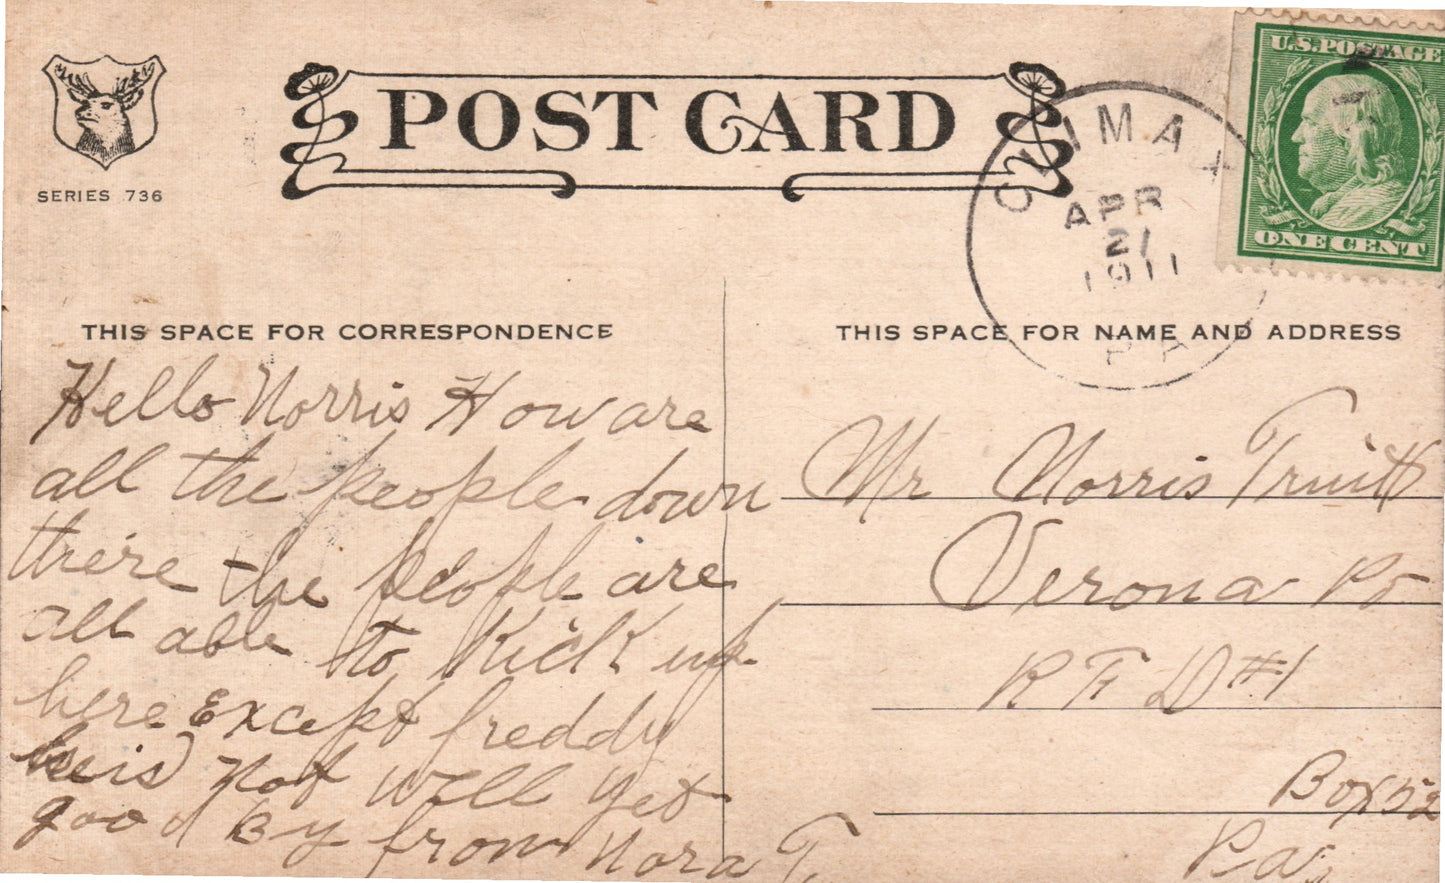 POST CARD
SERIES 736
CLIMAX
APR
21
1911
PA
U.S. POSTAGE
ONE CENT
THIS SPACE FOR CORRESPONDENCE
Hello Norris How are
all the people down
there the people are
all able to Kick up
here Except freddy
he is not well yet
good By from Nora T.
THIS SPACE FOR NAME AND ADDRESS
Mr Norris Truitt
Verona Po
R F D #1
Box 52
Pa,